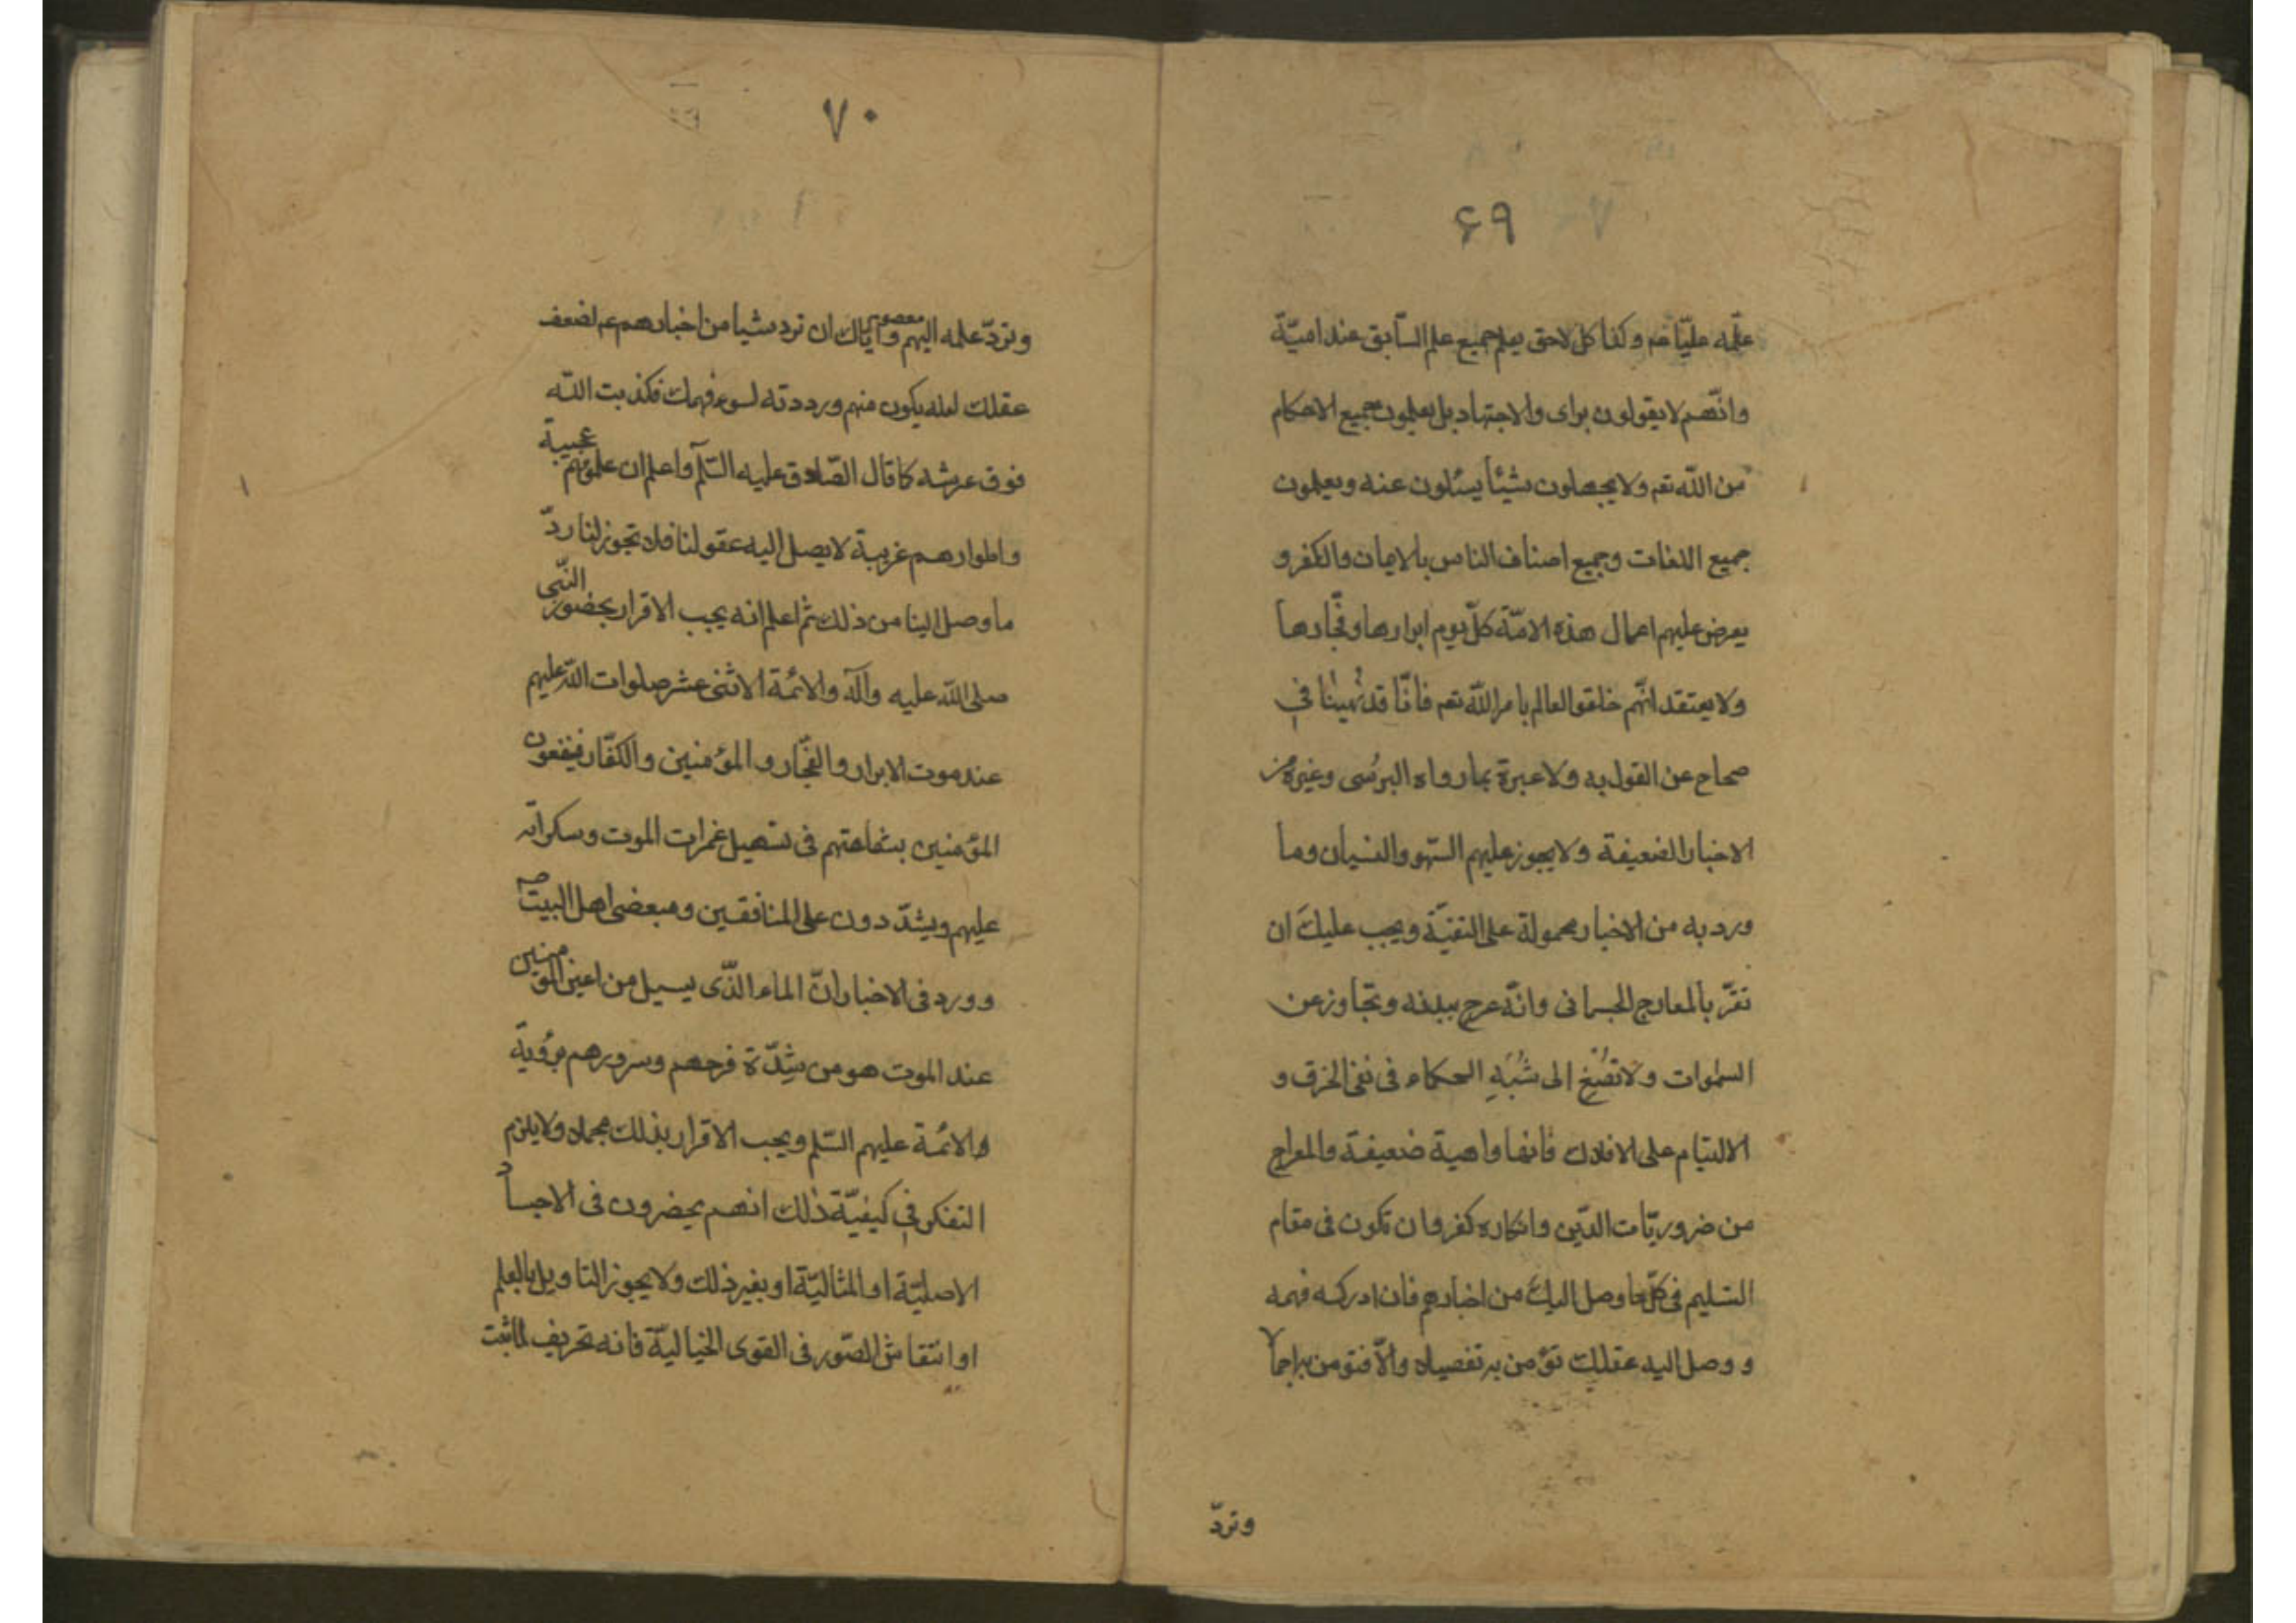 ۶۹
علّمه عليّا عم و كذا كل لاحق يعلم جميع علم السّابق عند اميّة
وانّهم لا يقولون براى والاجتهاد بل يعلمون جميع الاحكام
من اللّه تعم ولا يجهلون شيئا يسئلون عنه ويعلمون
جميع اللغات وجميع اصناف الناس بالايمان والكفر و
يعرض عليهم اعمال هذه الامّة كلّ يوم ابرارها وفجّارها
ولا يعتقد انّهم خلقو العالم بامر اللّه تعم فانّا قد نُهينا في
صحاح عن القول به ولا عبرة بما رواه البرسُى وغيره من
الاخبار الضعيفة ولا يجوز عليهم السّهو والنسيان وما
ورد به من الاخبار محمولة على التقيّة ويجب عليك ان
تقرّ بالمعارج الجسمانى وانّه عرج ببدنه وتجاوز عن
السموات ولا تصْغِ الى شُبَهِ الحكماء فى نفى الخرق و
الالتيام على الافلاك فانها واهية ضعيفة والمعراج
من ضروريّات الدّين وانكاره كفر وان تكون فى مقام
التسليم فى كلّ ما وصل اليك من اخبارهم فان ادركه فهمه
و وصل اليه عقلك تؤمن به تفصيلا والّا فتؤمن به اجمالا
وتردّ
۷۰
وتردّ علمه اليهم واياك ان ترد شيا من اخبارهم عم لضعف
معصوم
عقلك لعله يكون منهم ورددته لسوء فهمك فكذبت اللّه
فوق عرشه كما قال الصّادق عليه السّلم واعلم ان علومهم عجيبة
واطوارهم غريبة لا يصل اليه عقولنا فلا تجوز لنا ردّ
ما وصل الينا من ذلك ثم اعلم انه يجب الاقرار بحضور النّبى
صلى اللّه عليه وآله والائمة الاثنى عشر صلوات اللّه عليهم
عند موت الابرار والفجّار و المؤمنين والكفّار فينفعون
المؤمنين بشفاعتهم فى تسهيل غمرات الموت وسكراته
عليهم ويشدّدون على المنافقين ومبغضى اهل البيت صم
و ورد فى الاخبار انّ الماء الذّى يسيل من اعين المومنين
عند الموت هو من شدّة فرحهم وسرورهم برؤية
والائمة عليهم السّلم ويجب الاقرار بذلك مجملا ولا يلزم
التفكر فى كيفيّة ذلك انهم يحضرون فى الاجساد
الاصليّة او المثاليّة او بغير ذلك ولا يجوز التاويل بالعلم
او انتقاش الصّور فى القوى الخياليّة فانه تحريف لما ثبت